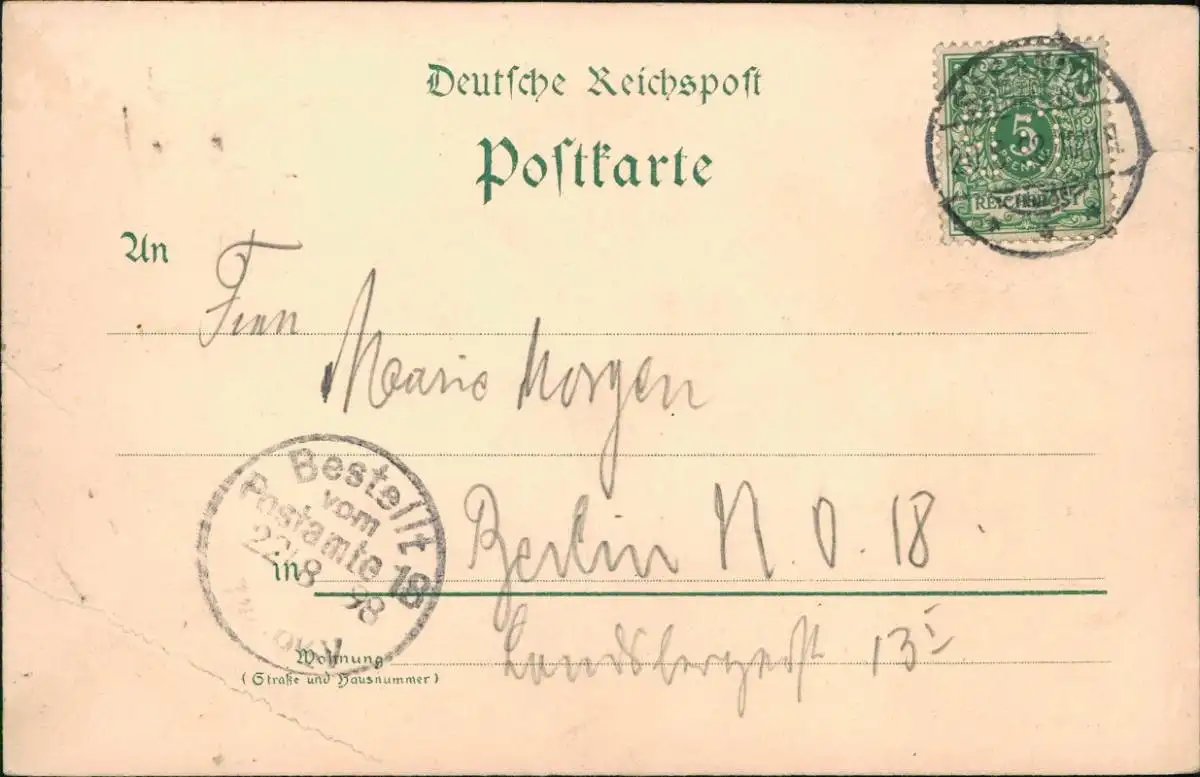 Deutsche Reichspost
Postkarte
5
REICHSPOST
An Frau
Marie Morgen
Bestellt
vom
Postamte 18
22/8 98
in Berlin N. O. 18
Wohnung
(Straße und Hausnummer)
Landsbergerst 13 I